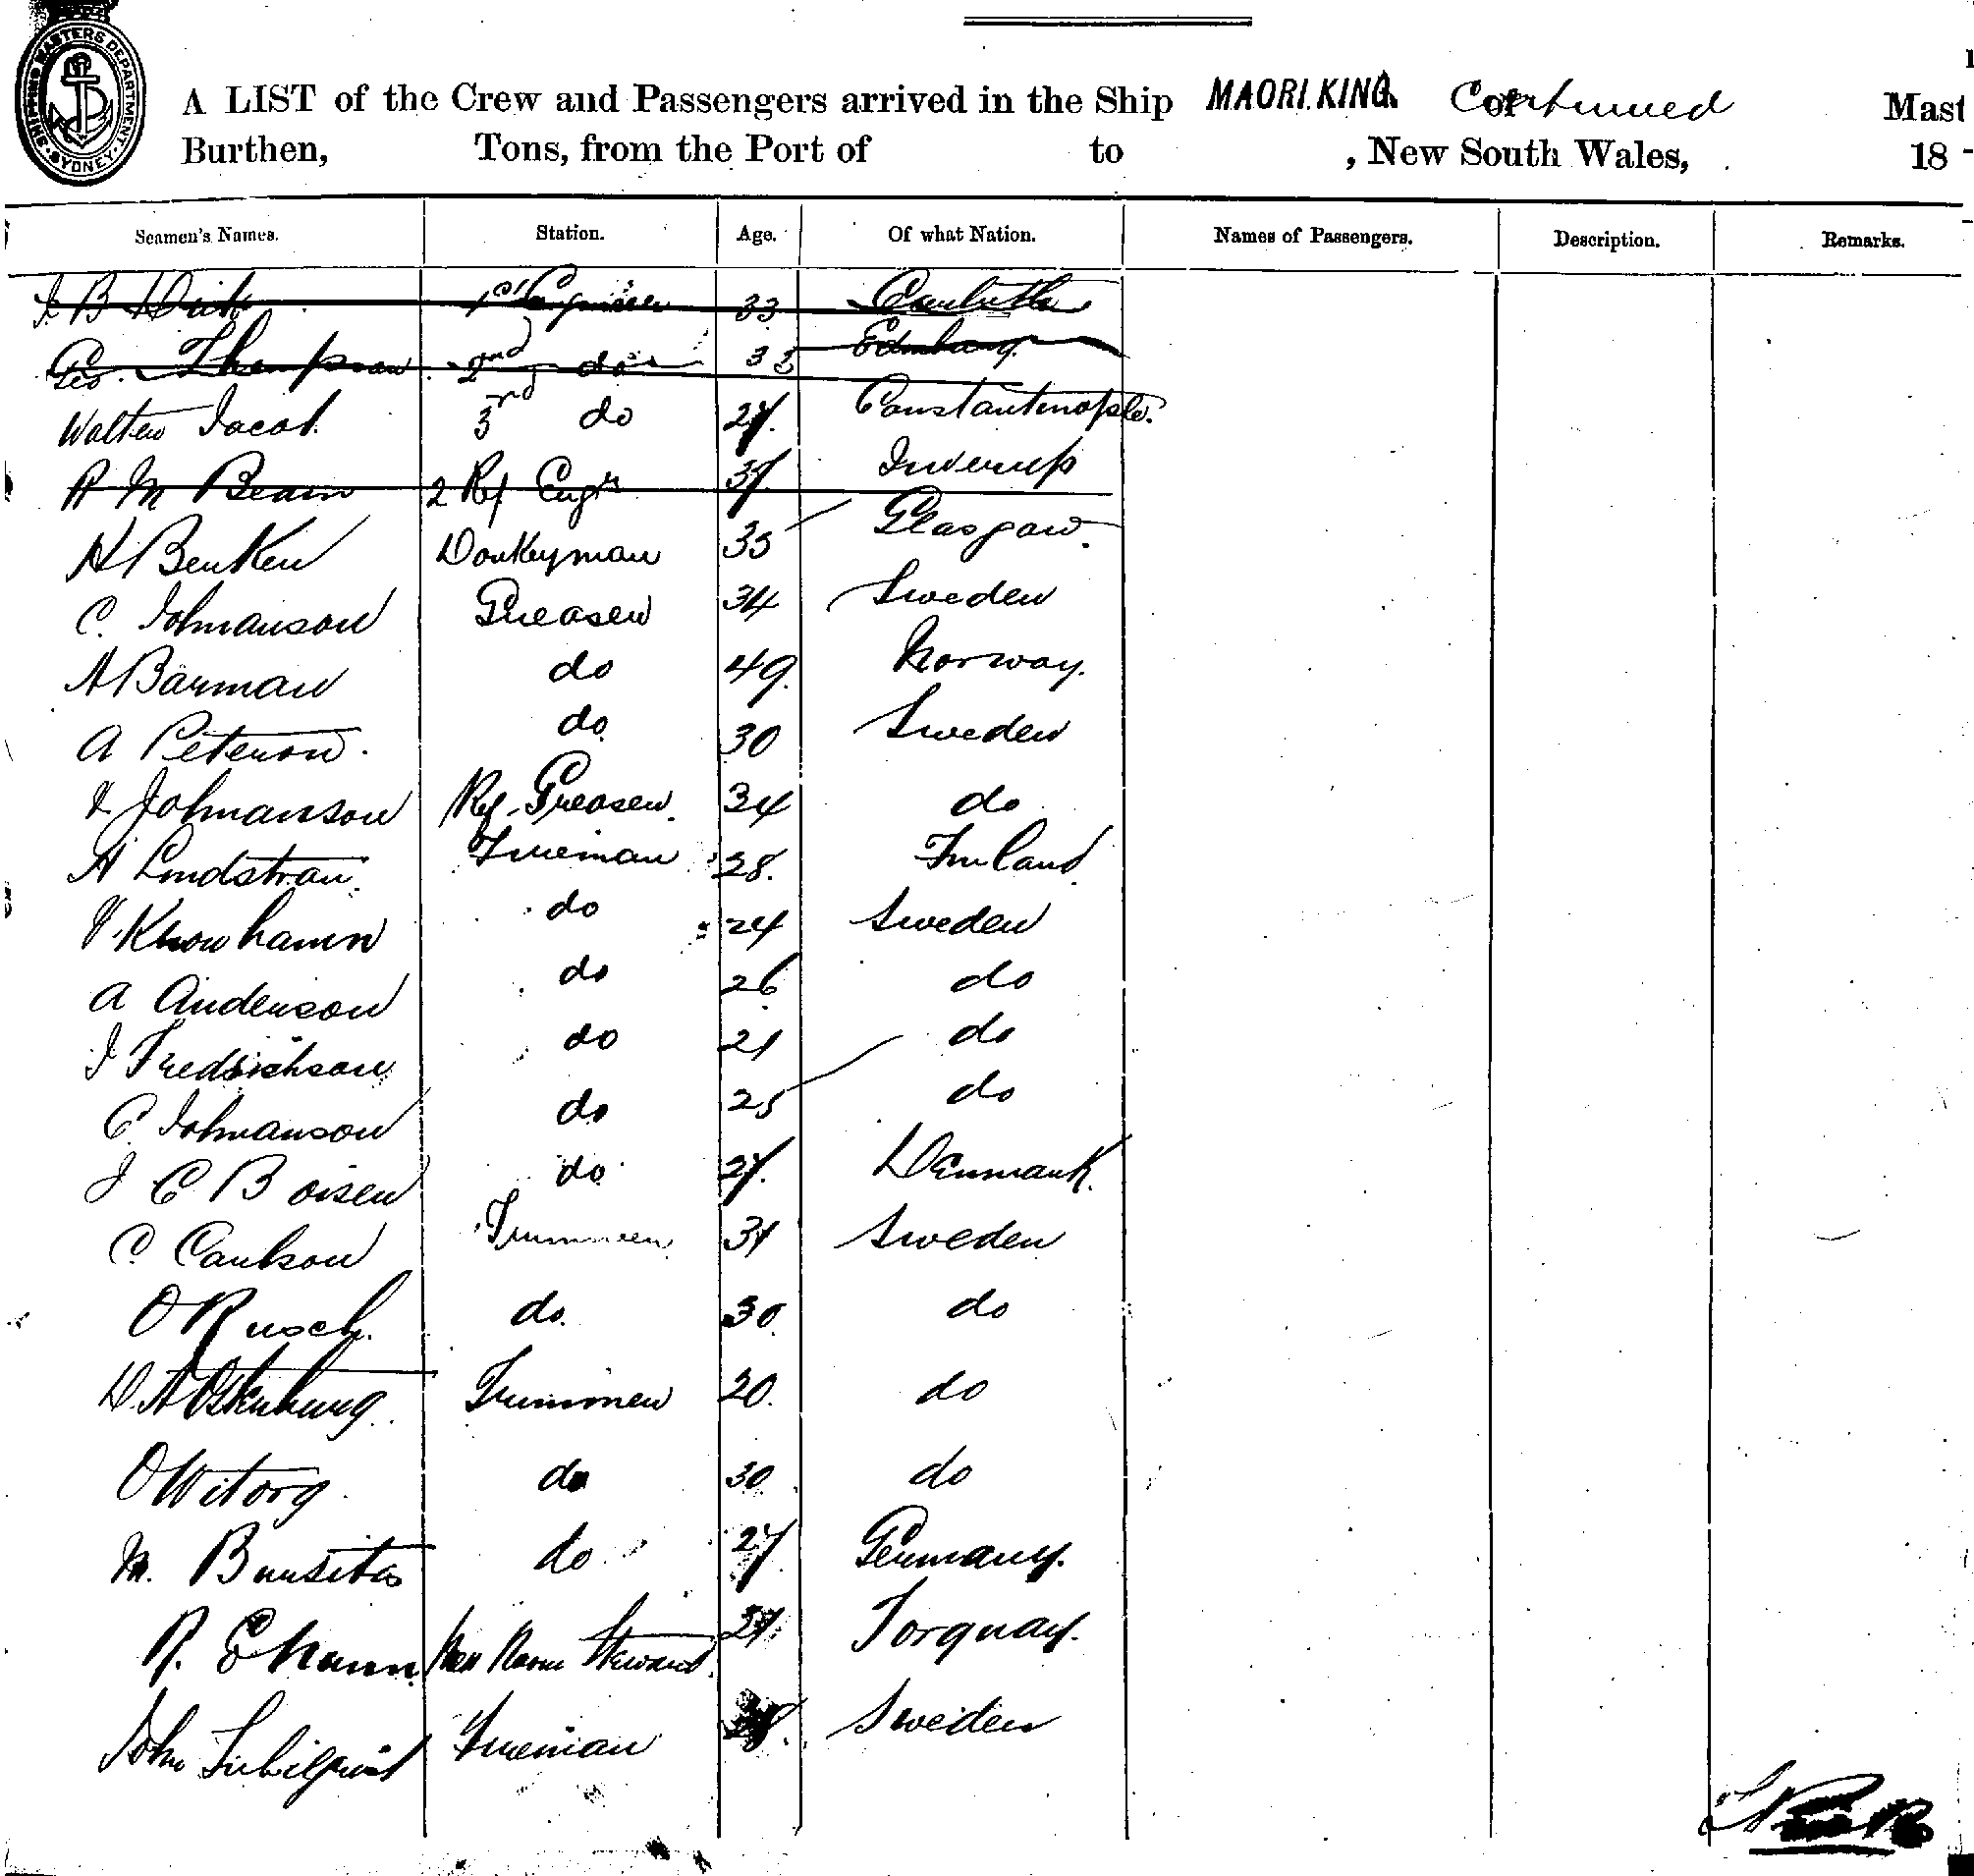 SHIPPING MASTERS DEPARTMENT SYDNEY
A LIST of the Crew and Passengers arrived in the Ship MAORI.KING. Continued of Mast
Burthen, Tons, from the Port of to , New South Wales, 18
Seamen's Names. Station. Age. Of what Nation. Names of Passengers. Description. Remarks.
J B Dick 1st Engineer 33
Geo. Thompson 2nd do 33 Edinburg.
Walter Jacob. 3rd do 27. Constantinople.
R M Beam 2 Ref Engr 37. Inverurie
H Benken Donkeyman 35 Glasgow.
C. Johnanson Greaser 34 Sweden
A Barman do 49. Norway.
A Peterson. do 30 Sweden
J Johnanson Ref. Greaser. 34 do
A Lindstran. Fireman 28. Finland
do 24 Sweden
A Anderson do 26 do
J Fredrickson do 21 do
C. Johnanson do 25 do
J C Boisen do 27. Denmark.
C. Carlson Trimmer 31 Sweden
O Rusch. do. 30. do
D. A Oskuburg. Trimmer 20. do
O Witorg. do 30 do
M. Bunsitas do 27. Germany.
R. Mess Room Steward 21. Torquay.
John Fireman Sweden